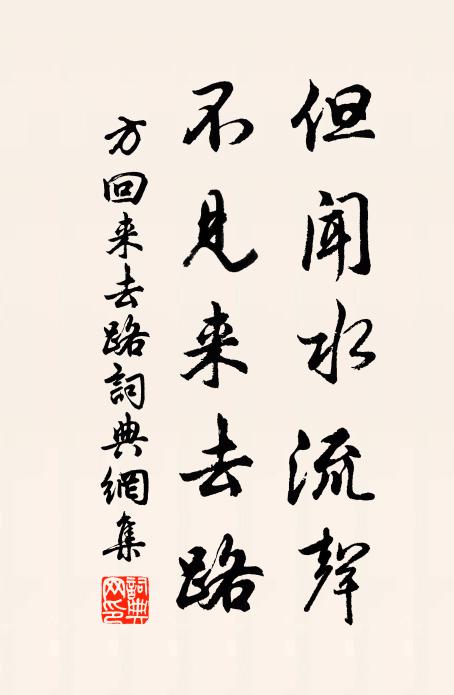 但闻水流聲
不见来去路
方回来去路詞典網集
詞典网印